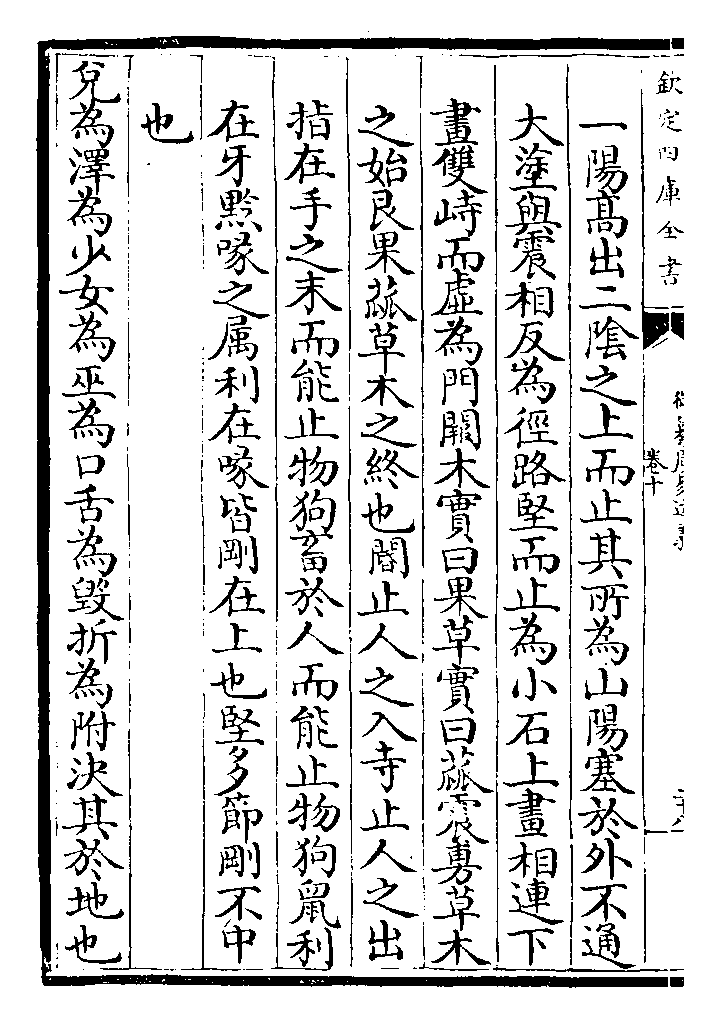 欽定四庫全書
卷十
一陽髙出二陰之上而止其所為山陽塞於外不通
大塗與震相反為徑路堅而止為小石上畫相連下
畫雙峙而虛為門闕木實曰果草實曰蓏震旉草木
之始艮果蓏草木之終也閽止人之入寺止人之出
指在手之末而能止物狗畜於人而能止物狗鼠利
在牙黔喙之属利在喙皆剛在上也堅多節剛不中
也
兌為澤為少女為巫為口舌為毁折為附決其於地也